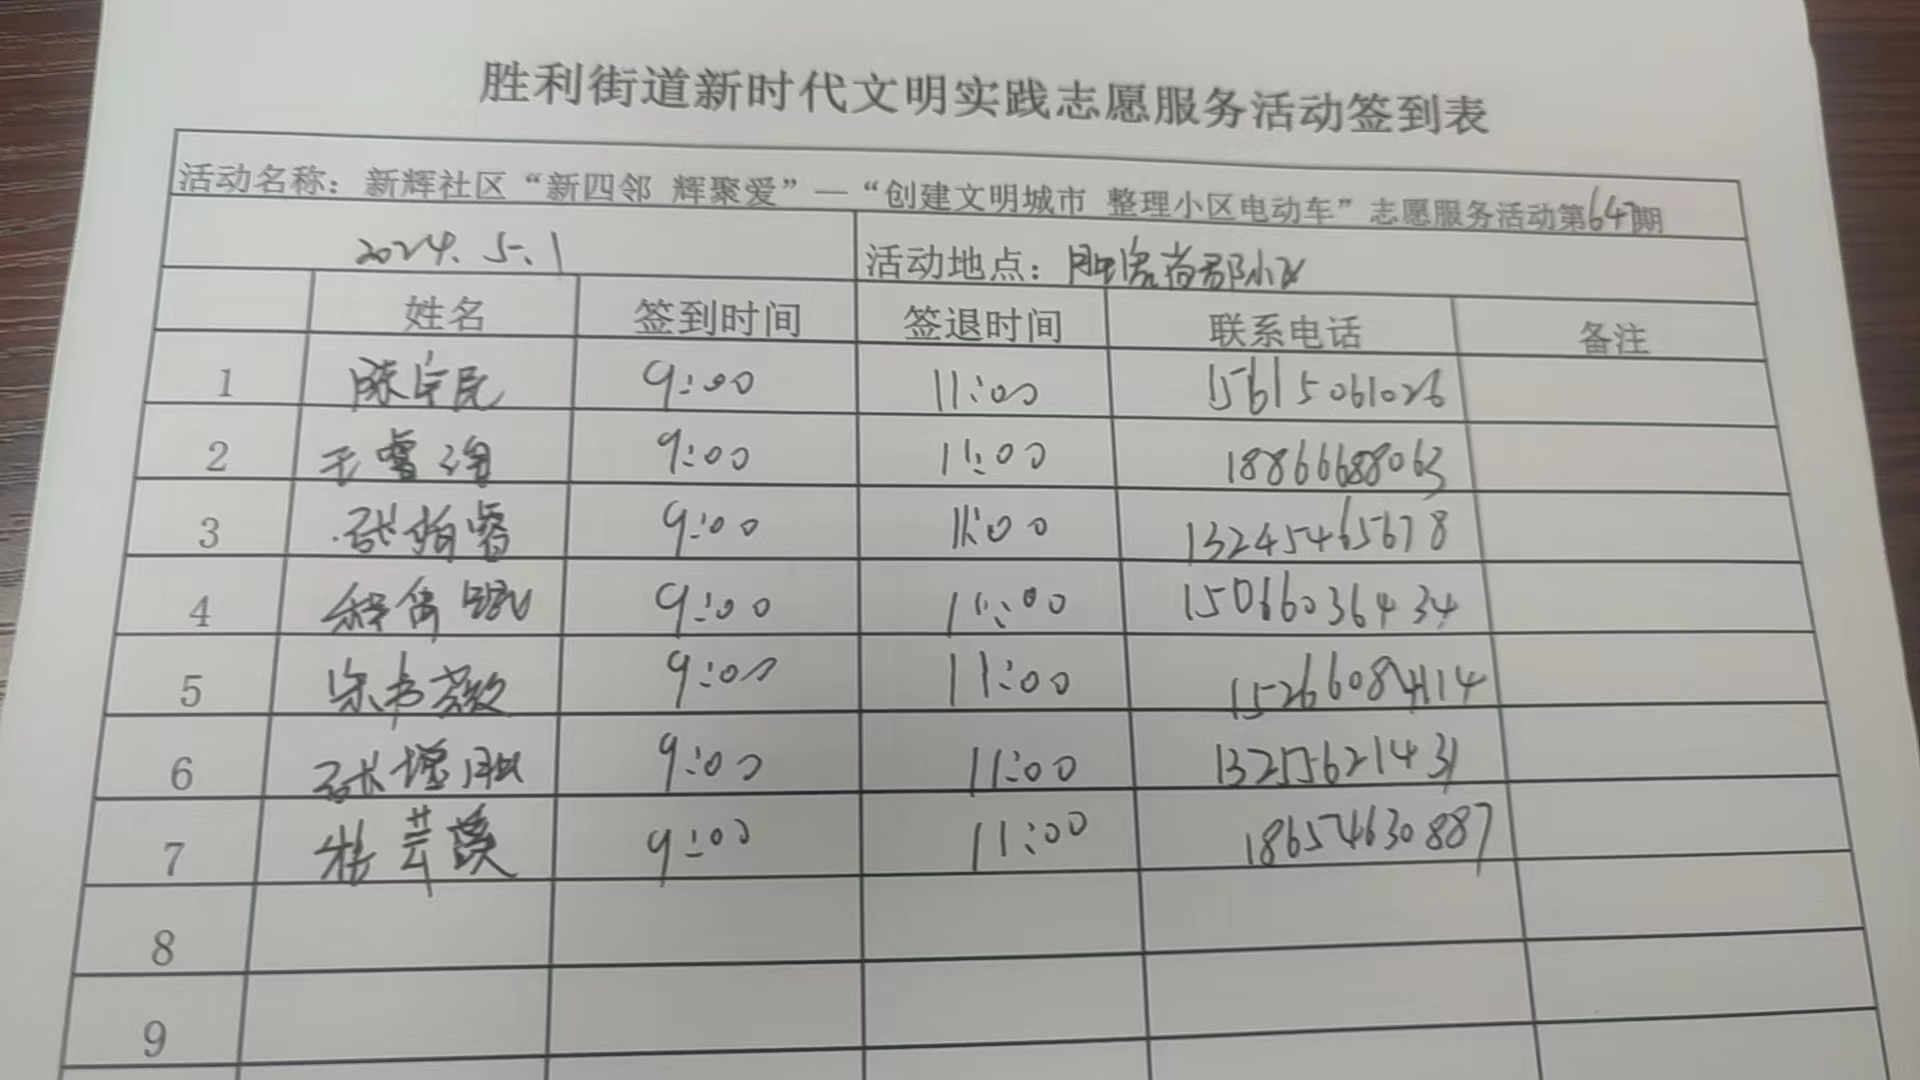 胜利街道新时代文明实践志愿服务活动签到表
活动名称：新辉社区“新四邻 辉聚爱”—“创建文明城市 整理小区电动车”志愿服务活动第647期
2024.5.1 活动地点：胜滨尚郡小区
姓名 签到时间 签退时间 联系电话 备注
1 陈宇民 9:00 11:00 15615061026
2 王睿涵 9:00 11:00 18866688063
3 张柏睿 9:00 11:00 13245465678
4 9:00 11:00 15066036434
5 宋书毅 9:00 11:00 15266084114
6 张增胜 9:00 11:00 13255621431
7 杨芸溪 9:00 11:00 18654630887
8
9